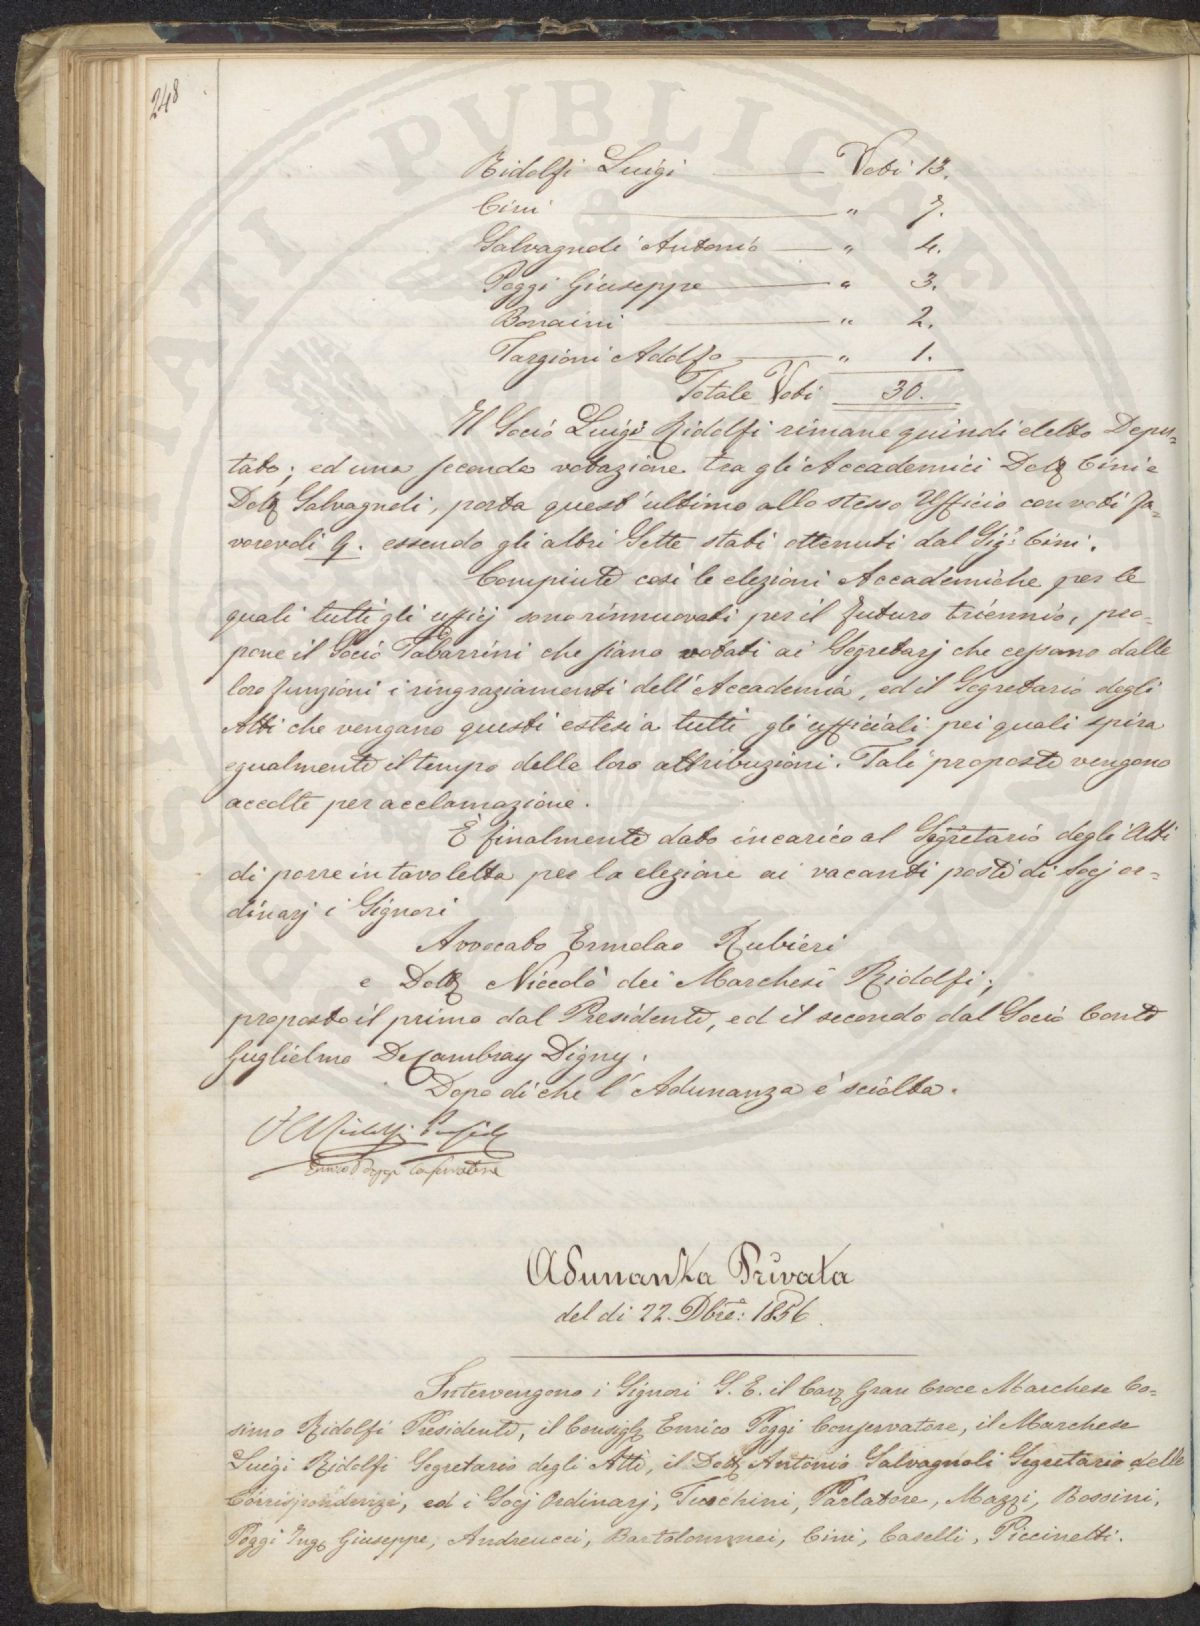 248
Ridolfi Luigi — Voti 13.
Cini — " 7.
Salvagnoli Antonio — " 4.
Poggi Giuseppe — " 3.
Bonaini — " 2.
Targioni Adolfo — " 1.
Totale Voti 30.
Il Socio Luigi Ridolfi rimane quindi eletto Depu-
tato; ed una seconda votazione tra gli Accademici Dott Cini e
Dott Salvagnoli, porta quest'ultimo allo stesso Ufficio con voti fa-
vorevoli 9. essendo gli altri Sette stati ottenuti dal Sigr: Cini.
Compiute così le elezioni Accademiche per le
quali tutti gli uffizj sono rinnuovati per il futuro triennio, pro-
pone il Socio Tabarrini che siano votati ai Segretarj che cessano dalle
loro funzioni i ringraziamenti dell'Accademia, ed il Segretario degli
Atti che vengano questi estesi a tutti gli ufficiali pei quali spira
egualmente il tempo delle loro attribuzioni. Tali proposte vengono
accolte per acclamazione.
È finalmente dato incarico al Segretario degli Atti
di porre in tavoletta per la elezione ai vacanti posti di Socj or-
dinarj i Signori
Avvocato Ermolao Rubieri
e Dott Niccolò dei Marchesi Ridolfi;
proposto il primo dal Presidente, ed il secondo dal Socio Conte
Guglielmo De Cambray Digny.
Dopo di che l'Adunanza è sciolta.
Ridolfi Presid
Enrico Poggi Conservatore
Adunanza Privata
del di 22. Dbre: 1856.
Intervengono i Signori S. E. il Cav Gran Croce Marchese Co-
simo Ridolfi Presidente, il Consigl Enrico Poggi Conservatore, il Marchese
Luigi Ridolfi Segretario degli Atti, il Dott Antonio Salvagnoli Segretario delle
Corrispondenze, ed i Socj Ordinarj, Turchini, Parlatore, Mazzi, Bossini,
Poggi Ing Giuseppe, Andreucci, Bartolommei, Cini, Caselli, Piccinetti.